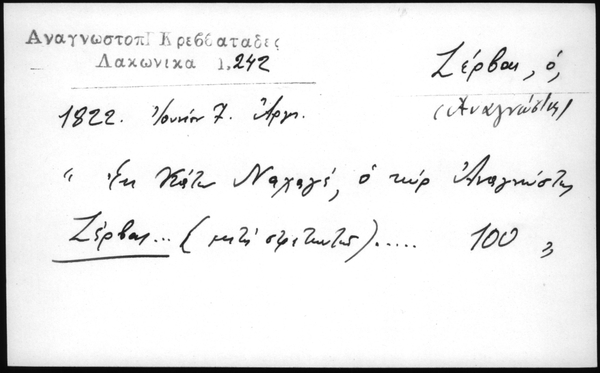 Αναγνωστοπ Κρεββαταδες
Λακωνικα 1,242
Ζέρβας, ὁ,
(Ἀναγνώστης)
1822. Ἰουνίου 7. Ἄργ.
" Ἐκ Κάτω Ναχαγέ, ὁ κὺρ Ἀναγνώστης
Ζέρβας... ( ).....  100 "